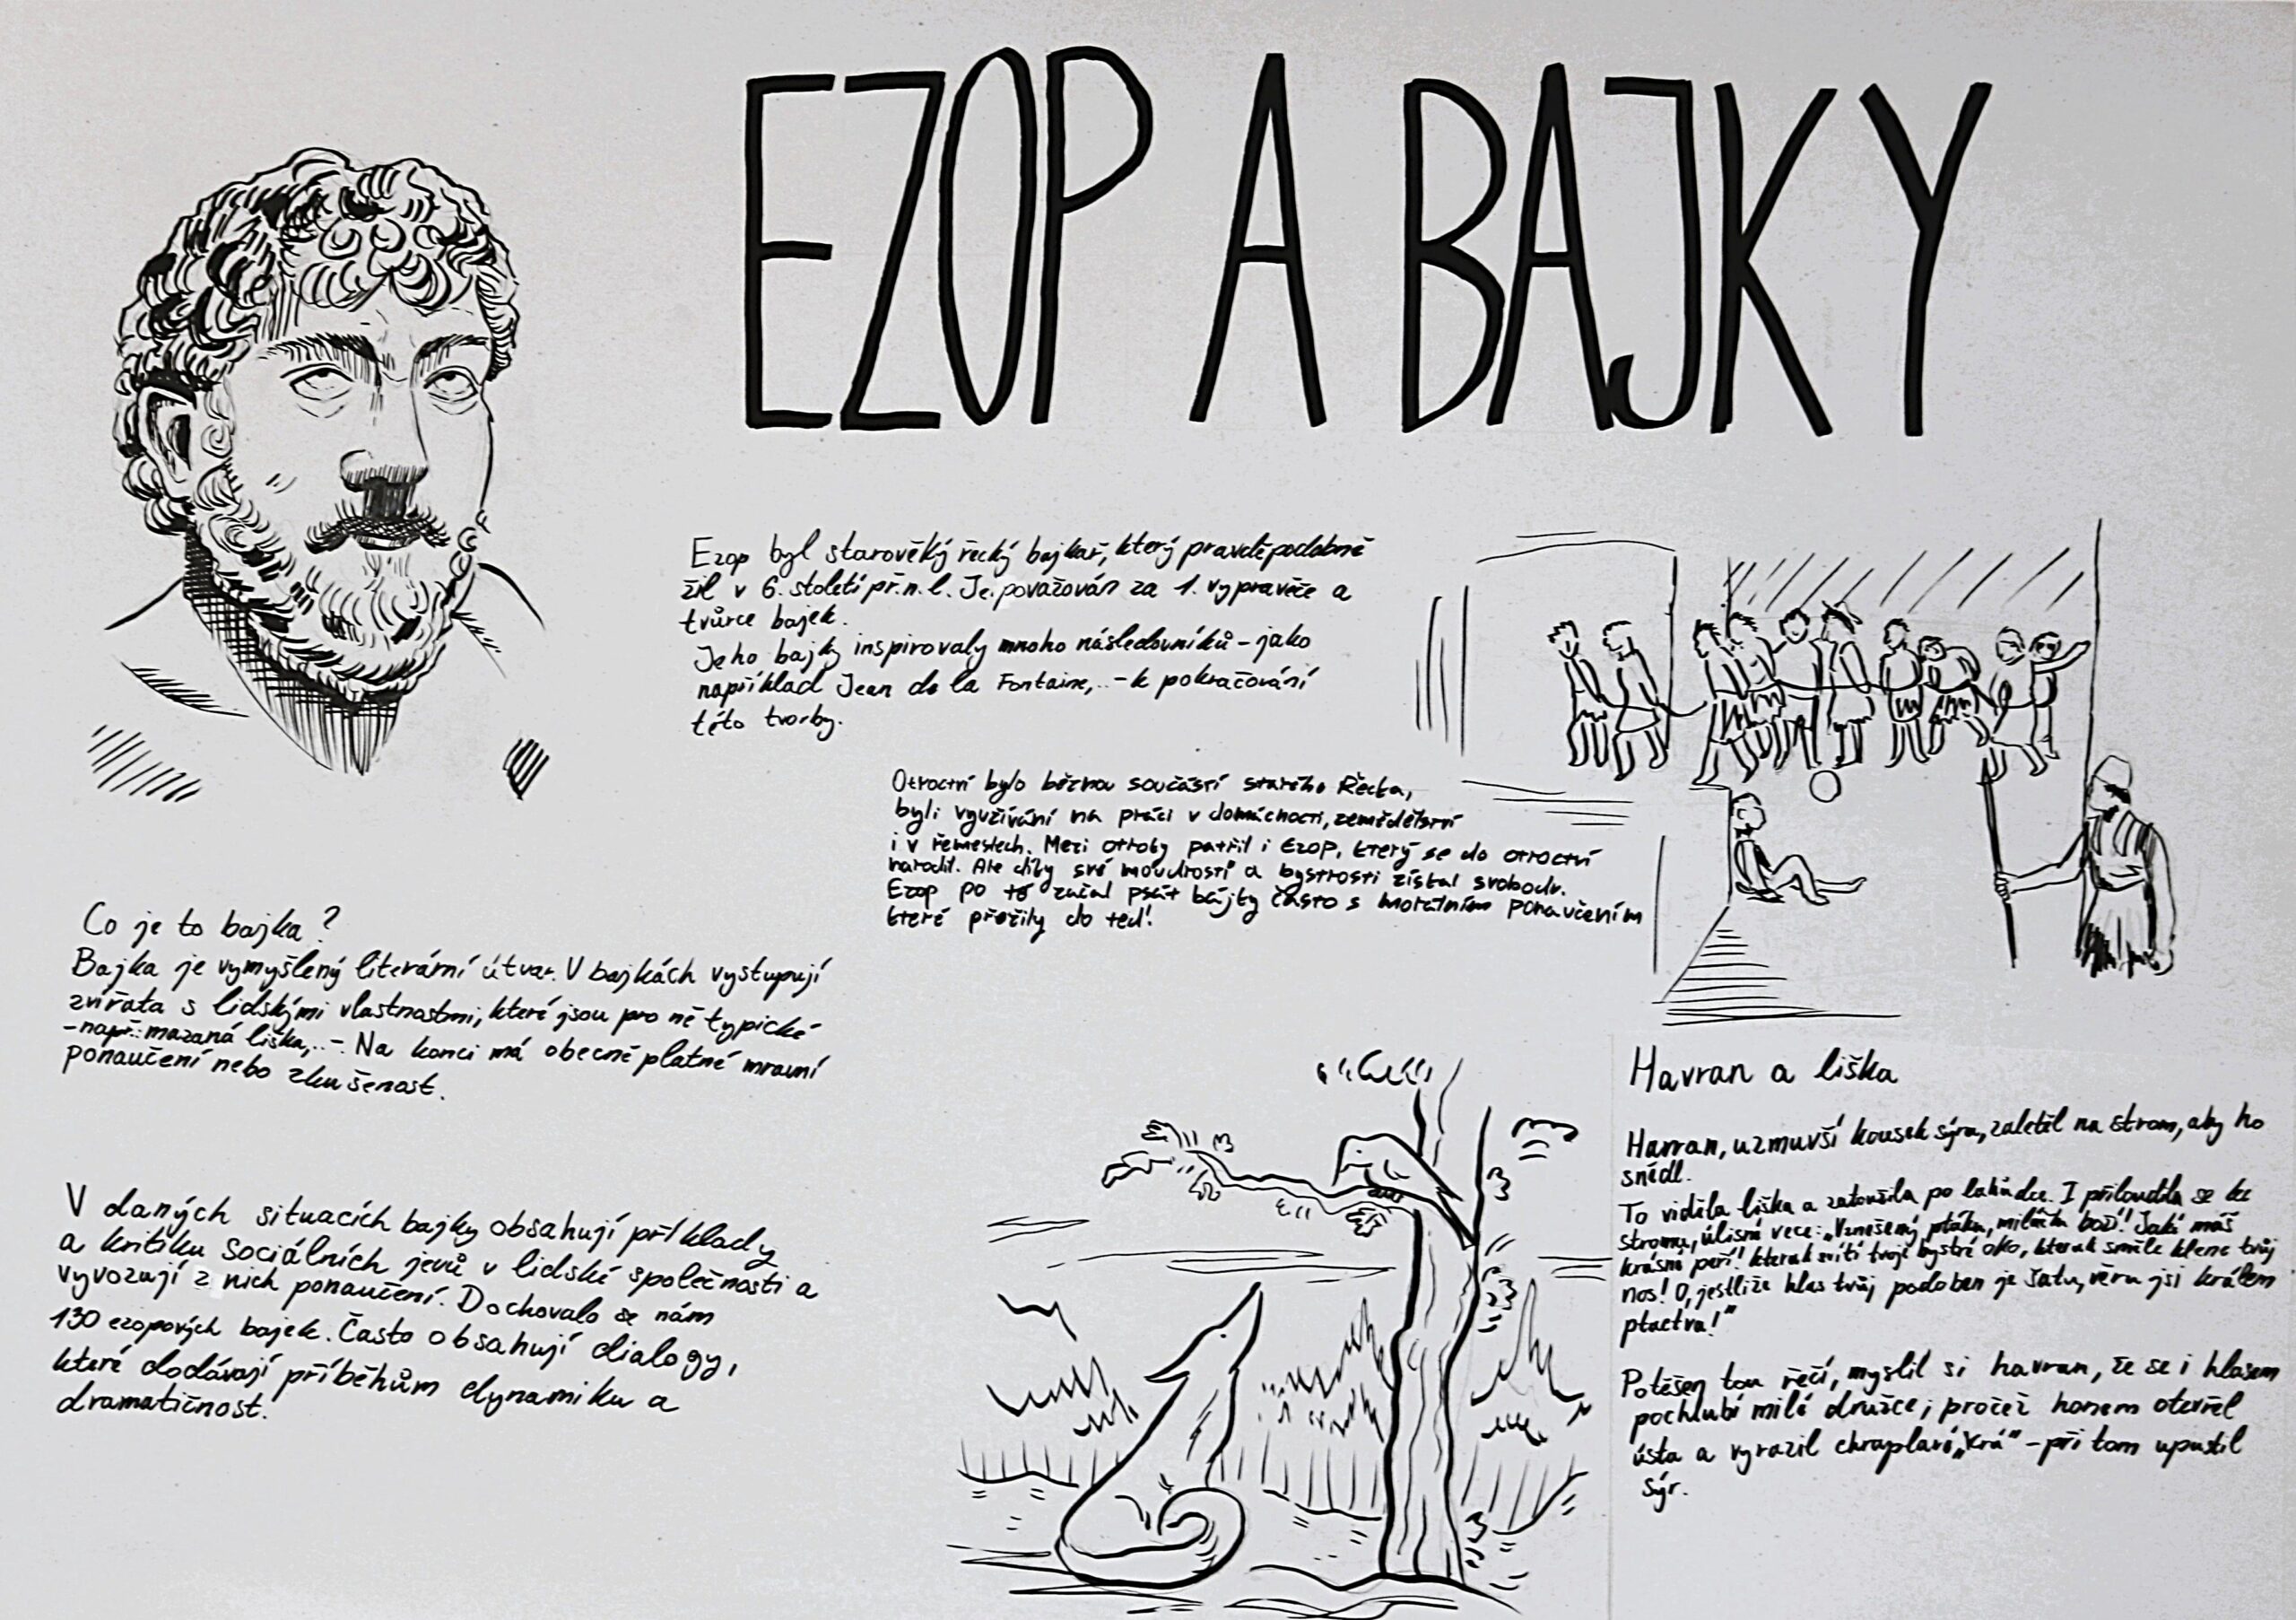 EZOP A BAJKY
Ezop byl starověký řecký bajkař, který pravděpodobně
žil v 6. století př. n. l. Je považován za 1. vypravěče a
tvůrce bajek.
Jeho bajky inspirovaly mnoho následovníků - jako
například Jean de la Fontaine,.. - k pokračování
této tvorby.
Otroctví bylo běžnou součástí starého Řecka,
byli využívání na práci v domácnosti, zemědělství
i v řemeslech. Mezi otroky patřil i Ezop, který se do otroctví
narodil. Ale díky své moudrosti a bystrosti získal svobodu.
Ezop po té začal psát bájky často s morálním ponaučením
které přežily do teď!
Co je to bajka?
Bajka je vymyšlený literární útvar. V bajkách vystupují
zvířata s lidskými vlastnostmi, které jsou pro ně typické
- např.: mazaná liška,.. -. Na konci má obecně platné mravní
ponaučení nebo zkušenost.
V daných situacích bajky obsahují příklady
a kritiku sociálních jevů v lidské společnosti a
vyvozují z nich ponaučení. Dochovalo se nám
130 ezopových bajek. Často obsahují dialogy,
které dodávají příběhům dynamiku a
dramatičnost.
Havran a liška
Havran, uzmuvší kousek sýra, zaletěl na strom, aby ho
snědl.
To viděla liška a zatoužila po lahůdce. I přiloudila se ke
stromu, úlisně vece: „Vznešený ptáku, miláčku boží! Jaké máš
krásné peří! kterak svítí tvoje bystré oko, kterak směle klene tvůj
nos! O, jestliže hlas tvůj podoben je šatu, věru jsi králem
ptactva!"
Potěšen tou řečí, myslil si havran, že se i hlasem
pochlubí milé družce; pročež honem otevřel
ústa a vyrazil chraplavé „krá" - při tom upustil
sýr.